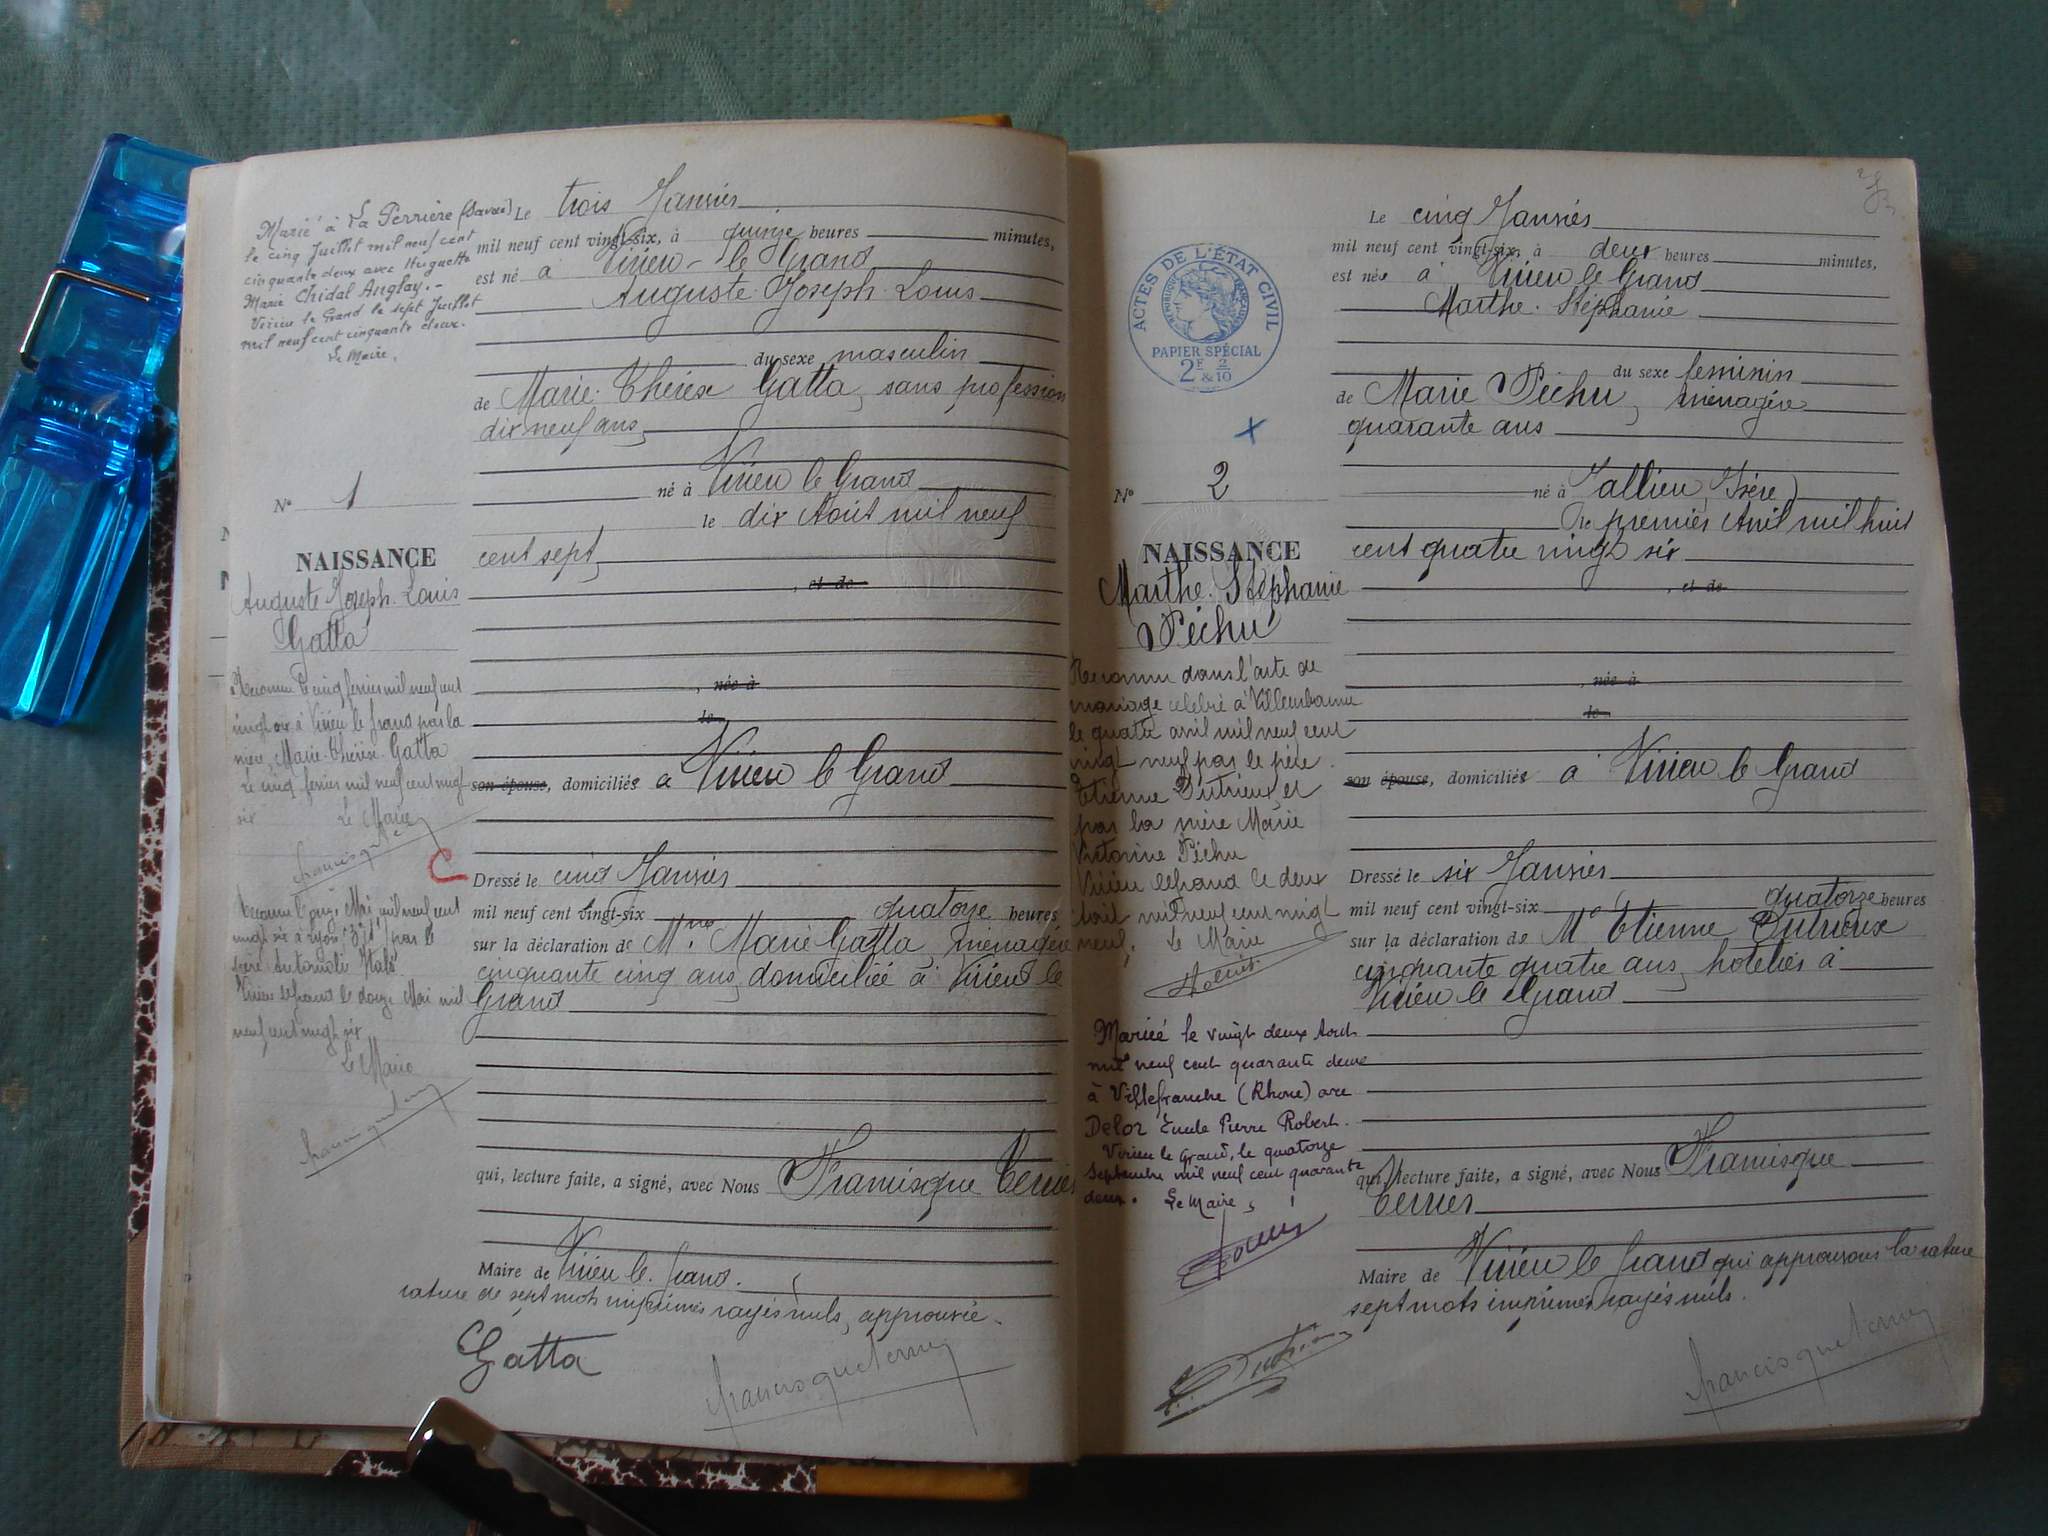 Marié à La Perrière (Savoie)
le cinq Juillet mil neuf cent
cinquante deux avec Huguette
Marie Chidal Anglay.-
Virieu le Grand le sept Juillet
mil neuf cent cinquante deux.
Le Maire,
N° 1
NAISSANCE
Auguste Joseph Louis
Gatta
Reconnu le cinq février mil neuf cent
vingt six à Virieu le Grand par la
mère, Marie-Thérèse Gatta
Le cinq février mil neuf cent vingt
six Le Maire
Reconnu le onze Mai mil neuf cent
vingt six à Lyon par le
père
Virieu le Grand le douze Mai mil
neuf cent vingt six
Le Maire
Le trois Janvier
mil neuf cent vingt-six, à quinze heures minutes,
est né à Virieu-le Grand
Auguste Joseph Louis
du sexe masculin
de Marie-Thérèse Gatta, sans profession
dix neuf ans,
né à Virieu le Grand
le dix Août mil neuf
cent sept,
, et de
, née à
le
son épouse, domiciliés à Virieu le Grand
Dressé le cinq Janvier
mil neuf cent vingt-six quatorze heures
sur la déclaration de Mme Marie Gatta, ménagère
cinquante cinq ans, domiciliée à Virieu le
Grand
qui, lecture faite, a signé, avec Nous Francisque Terrier
Maire de Virieu le Grand.
rature de sept mots imprimés rayés nuls, approuvée.
Gatta
ACTES DE L'ÉTAT CIVIL
RÉPUBLIQUE FRANÇAISE
PAPIER SPÉCIAL
2F & 2/10
N° 2
NAISSANCE
Marthe Stéphanie
Péchu
Reconnu dans l'acte de
mariage célébré à Villeurbanne
le quatre avril mil neuf cent
vingt neuf par le père
Etienne Dutrieux et
par la mère Marie
Victorine Péchu
Virieu le Grand le deux
mil neuf cent vingt
neuf, Le Maire
Mariée le vingt deux Aout
mil neuf cent quarante deux
à Villefranche (Rhone) avec
Delor Emile Pierre Robert.
Virieu le Grand, le quatorze
Septembre mil neuf cent quarante
deux. Le Maire,
Le cinq Janvier
mil neuf cent vingt-six, à deux heures minutes,
est née à Virieu le Grand
Marthe Stéphanie
du sexe féminin
de Marie Péchu, ménagère
quarante ans
né à Jallieu (Isère)
le premier Avril mil huit
cent quatre vingt six
, et de
, née à
le
son épouse, domiciliée à Virieu le Grand
Dressé le six Janvier
mil neuf cent vingt-six quatorze heures
sur la déclaration de Mr Etienne Dutrieux
cinquante quatre ans, hôtelier à
Virieu le Grand
qui, lecture faite, a signé, avec Nous Francisque
Terrier
Maire de Virieu le Grand qui approuvons la rature
sept mots imprimés rayés nuls.